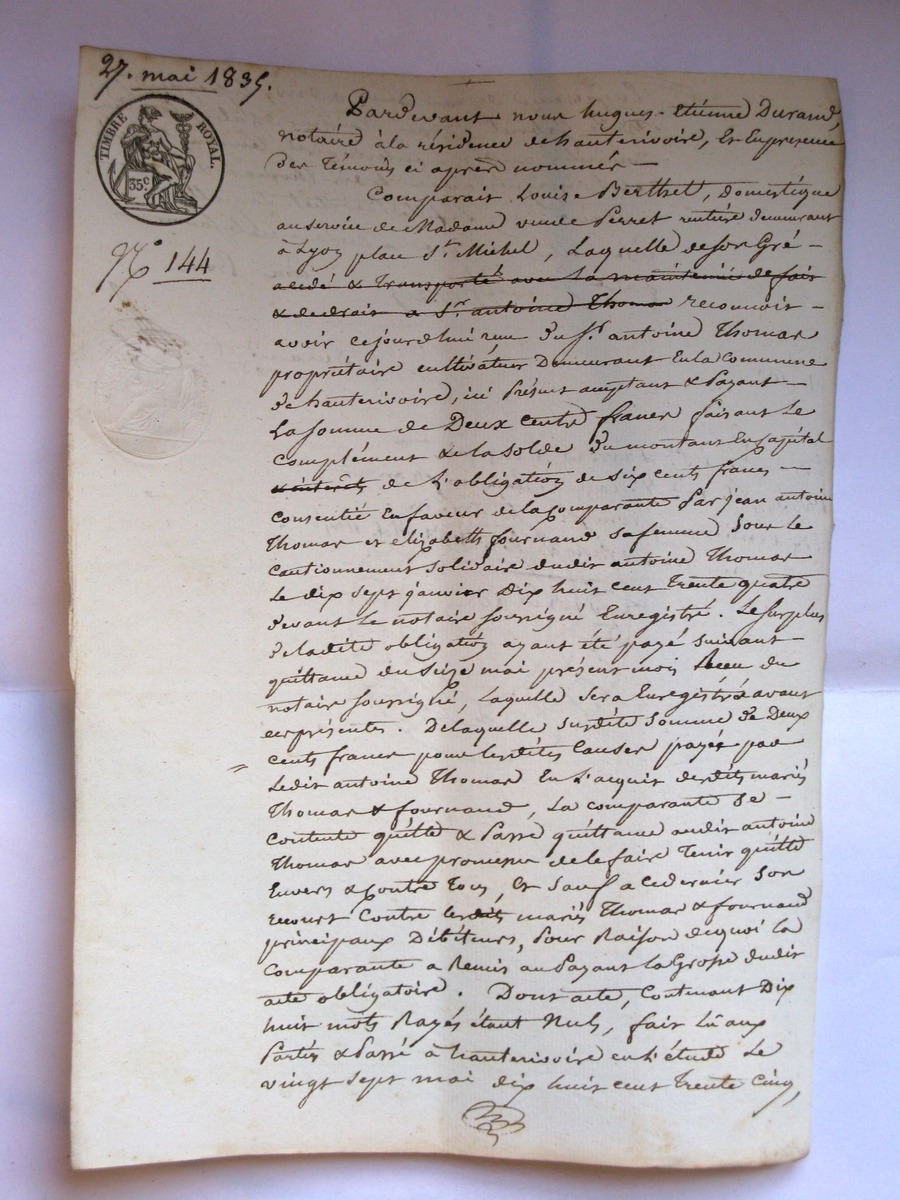 27. mai 1835.
TIMBRE ROYAL.
35c
No 144
Pardevant nous hugues-Etienne Durand,
notaire à la résidence de hauterivoire, Et En présence
des Témoins ci après nommés —
Comparait Louise Berthet, Domestique
au service de Madame veuve Perret rentière demeurant
à Lyon place St. Michel, Laquelle de son Gré —
a cédé & transporté avec La maintenüe de fait
& de droit a Sr. antoine Thomas reconnoit —
avoir cejourdhui reçu du Sr. antoine Thomas
propriétaire cultivateur Demeurant En la Commune
de hauterivoire, ici Présent acceptant & Payant —
La somme de Deux cents francs faisant Le
complément & la solde du montant En capital
& intérêts de L'obligation de six cents francs —
consentie En faveur de la comparante Par jean antoine
Thomas et elizabeth fournand sa femme Sous le
cautionnement solidaire dudit antoine Thomas
Le dix sept janvier Dix huit cent trente quatre
devant Le notaire soussigné Enregistré. Le surplus
de ladite obligation ayant été payé suivant —
quittance du seize mai présent mois Reçu du
notaire soussigné, Laquelle sera Enregistrée avant
ces présentes. De laquelle susdite somme de Deux
cents francs pour lesdites Causes payée par
Ledit antoine Thomas En L'acquit desdits mariés
Thomas & fournand, La comparante se —
contente quitte & Passe quittance audit antoine
Thomas avec promesse de le faire Tenir quitte
Envers & Contre Tous, Et sauf a ce dernier son
recours Contre lesdits mariés Thomas & fournand
principaux Débiteurs, Pour Raison de quoi la
comparante a Remis au Payant la Grosse dudit
acte obligatoire. Dont acte, Contenant Dix
huit mots Rayés étant Nuls, fait Lû aux
Parties & Passé à hauterivoire en L'étude Le
vingt sept mai dix huit cent trente Cinq,